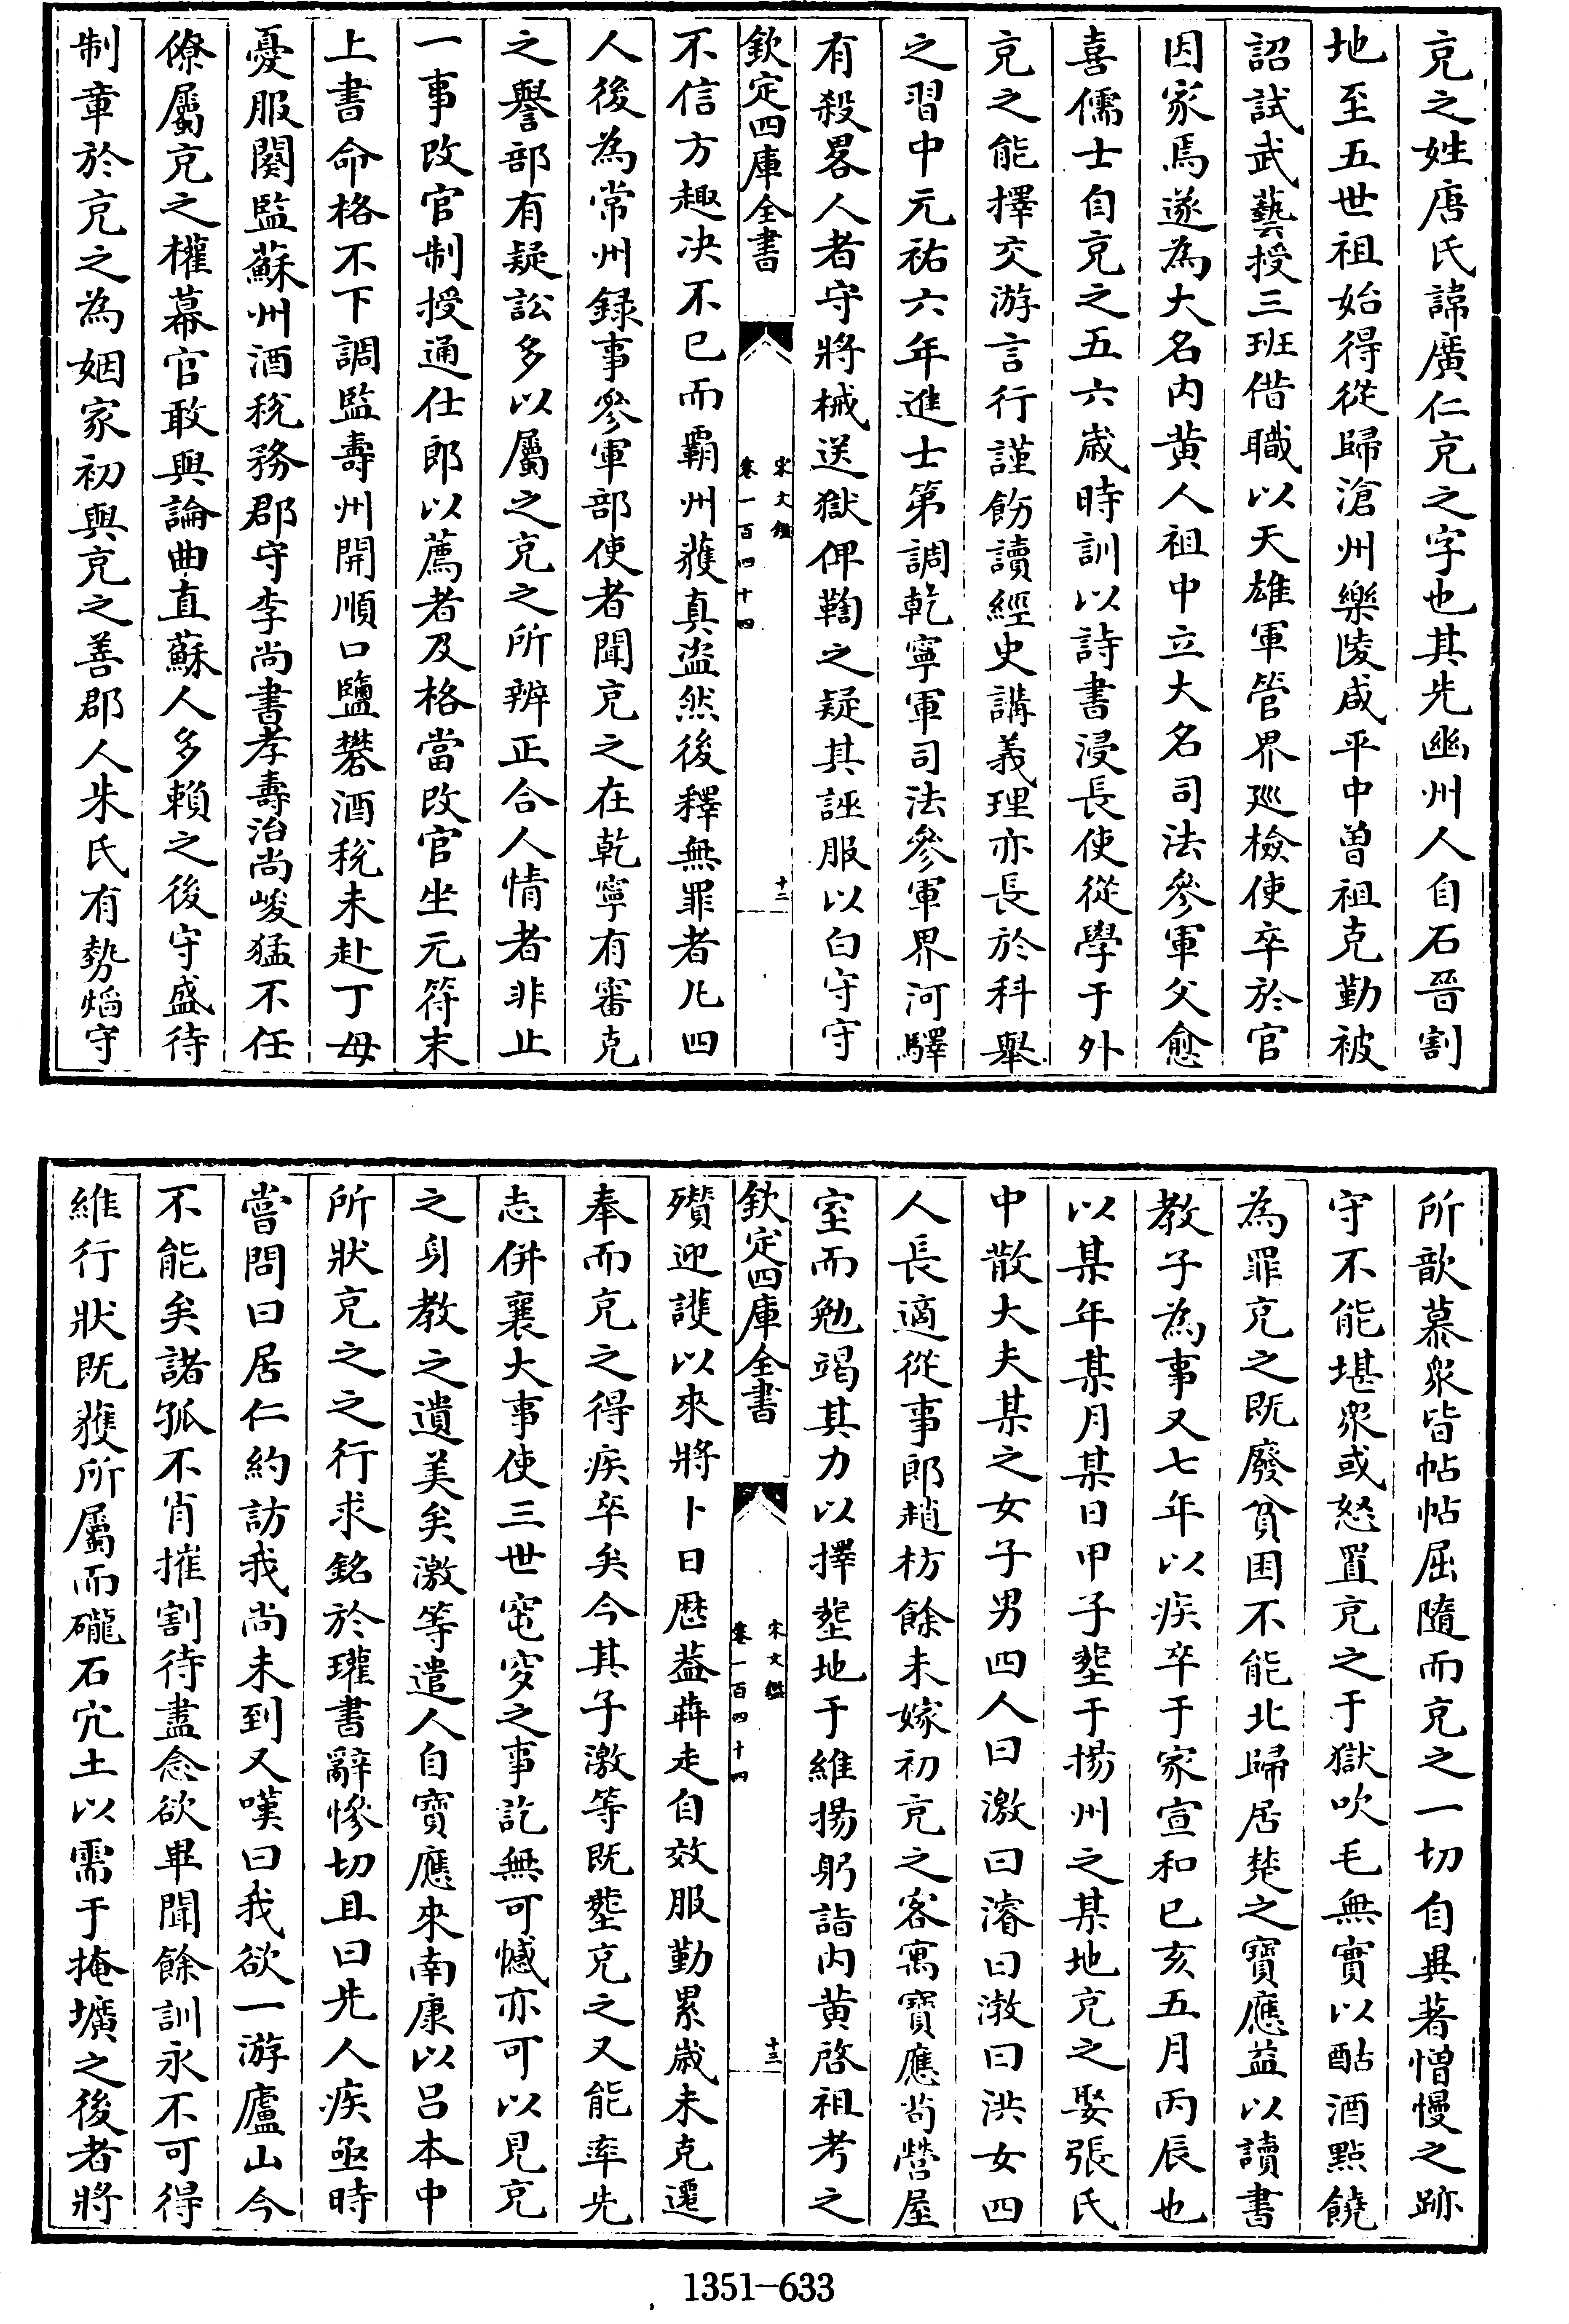 充之姓唐氏諱廣仁充之字也其先幽州人自石晉割
地至五世祖始得從歸滄州樂陵咸平中曾祖克勤被
詔試武藝授三班借職以天雄軍管界廵檢使卒於官
因家焉遂為大名内黄人祖中立大名司法參軍父愈
喜儒士自充之五六歲時訓以詩書浸長使從學于外
充之能擇交游言行謹飭讀經史講義理亦長於科舉
之習中元祐六年進士第調乾寧軍司法參軍界河驛
有殺畧人者守將械送獄俾鞫之疑其誣服以白守守
欽定四庫全書
宋文鑑
卷一百四十四
十二
不信方趣决不已而霸州獲真盗然後釋無罪者凡四
人後為常州録事參軍部使者聞充之在乾寧有審克
之譽部有疑訟多以屬之充之所辨正合人情者非止
一事改官制授通仕郎以薦者及格當改官坐元符末
上書命格不下調監壽州開順口鹽礬酒税未赴丁母
憂服闋監蘇州酒税務郡守李尚書孝壽治尚峻猛不任
僚屬充之權幕官敢與論曲直蘇人多賴之後守盛待
制章於充之為姻家初與充之善郡人朱氏有勢焰守
所歆慕衆皆帖帖屈隨而充之一切自異著憎慢之跡
守不能堪衆或怒置充之于獄吹毛無實以酤酒點饒
為罪充之既廢貧困不能北歸居楚之寶應益以讀書
教子為事又七年以疾卒于家宣和已亥五月丙辰也
以某年某月某日甲子塟于揚州之某地充之娶張氏
中散大夫某之女子男四人曰激曰濬曰漖曰洪女四
人長適從事郎趙枋餘未嫁初充之客寓寶應尚營屋
室而勉竭其力以擇塟地于維揚躬詣内黄啓祖考之
欽定四庫全書
宋文鑑
卷一百四十四
十三
殯迎護以來將卜日厯葢犇走自效服勤累歲未克遷
奉而充之得疾卒矣今其子激等既塟充之又能率先
志併襄大事使三世窀穸之事訖無可憾亦可以見充
之身教之遺美矣激等遣人自寶應來南康以呂本中
所狀充之之行求銘於瓘書辭慘切且曰先人疾亟時
嘗問曰居仁約訪我尚未到又嘆曰我欲一游廬山今
不能矣諸孤不肖摧割待盡念欲畢聞餘訓永不可得
維行狀既獲所屬而礲石宂土以需于掩壙之後者將
1351-633